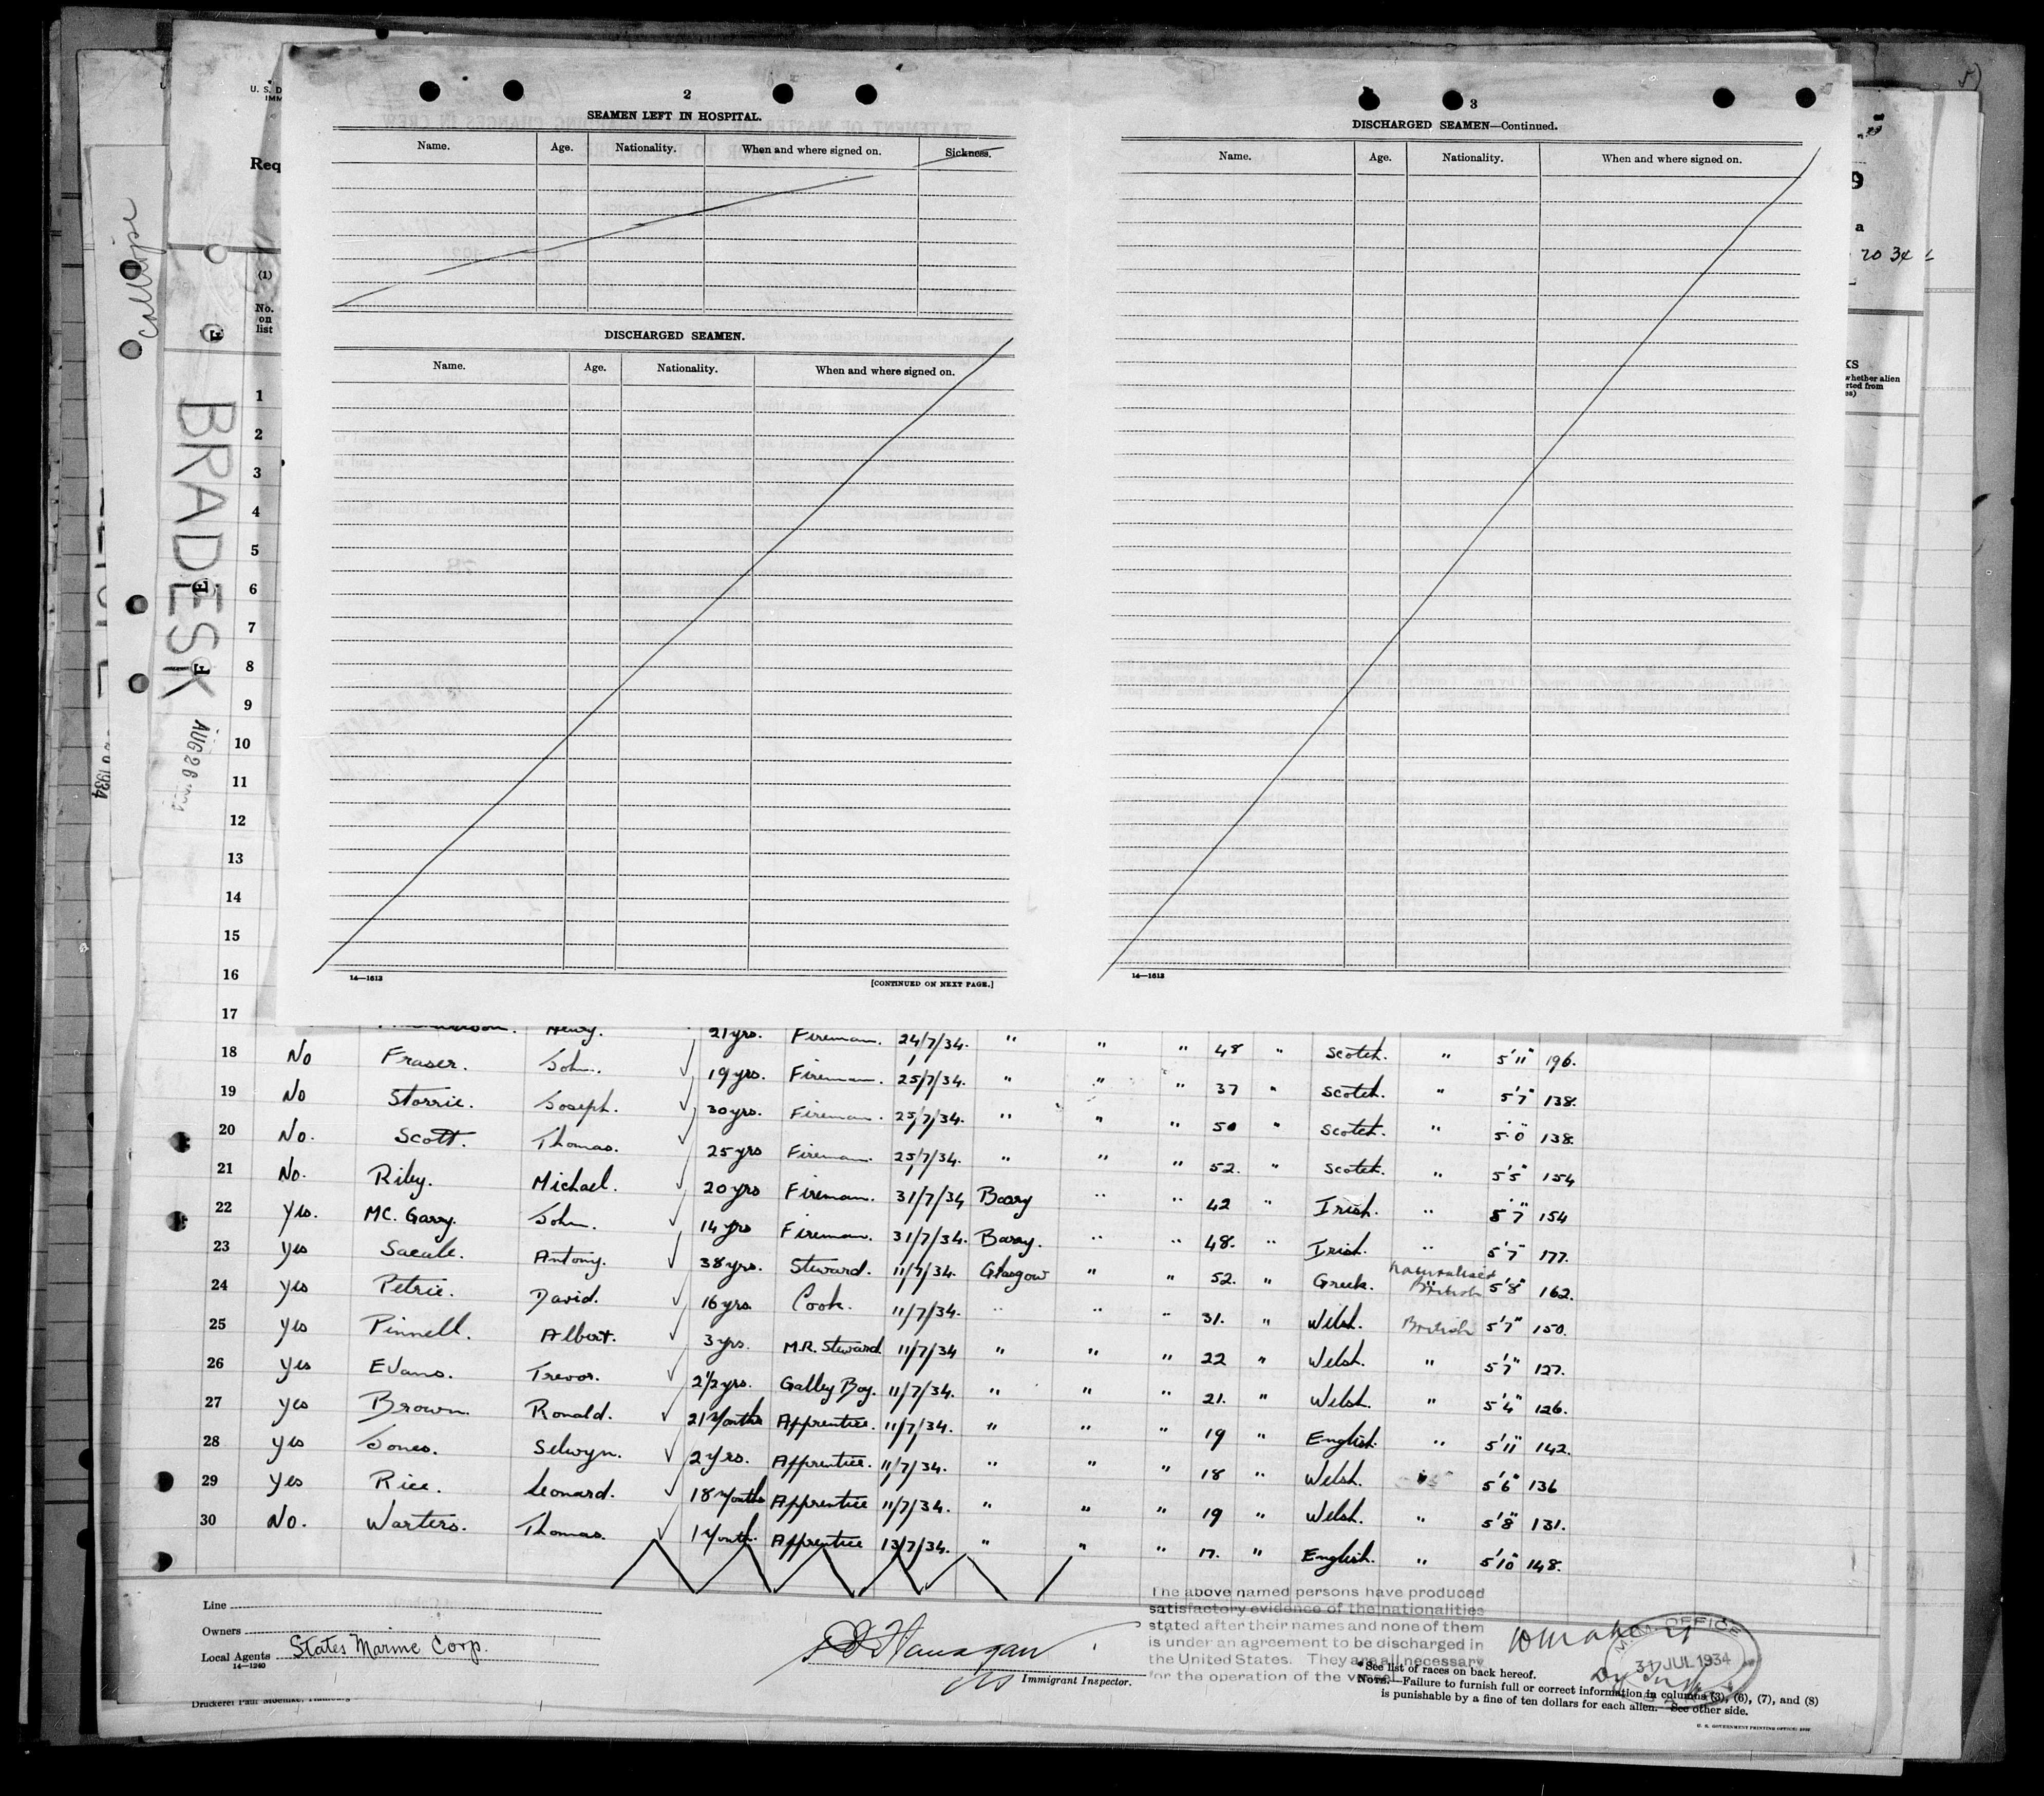 2
SEAMEN LEFT IN HOSPITAL.
Name. Age. Nationality. When and where signed on. Sickness.
DISCHARGED SEAMEN.
Name. Age. Nationality. When and where signed on.
14—1613
[CONTINUED ON NEXT PAGE.]
3
DISCHARGED SEAMEN—Continued.
Name. Age. Nationality. When and where signed on.
14—1613
U. S. D
IMM
Req
calliope
BRADESK
AUG 26
1934
(1)
No.
on
list
F
E
F
9
a
20 34
KS
whether alien
rted from
es)
1
2
3
4
5
6
7
8
9
10
11
12
13
14
15
16
17 Henry. 21 yrs. Fireman. 24/7/34. " " " 48 " Scotch. " 5'11" 196.
18 No Fraser. John. 19 yrs. Fireman. 25/7/34. " " " 37 " Scotch. " 5'7" 138.
19 No Storrie. Joseph. 30 yrs. Fireman. 25/7/34. " " " 50 " Scotch. " 5'0" 138.
20 No. Scott. Thomas. 25 yrs Fireman. 25/7/34. " " " 52. " Scotch. " 5'5" 154
21 No. Riley. Michael. 20 yrs Fireman. 31/7/34 Barry " " 42 " Irish. " 5'7" 154
22 Yes. MC. Garry. John. 14 yrs Fireman. 31/7/34. Barry. " " 48. " Irish. " 5'7" 177.
23 Yes Antony. 38 yrs. Steward. 11/7/34. Glasgow " " 52. " Greek. Naturalised British 5'8" 162.
24 Yes Petrie. David. 16 yrs Cook. 11/7/34. " " " 31. " Welsh. British 5'7" 150.
25 Yes Pinnell. Albert. 3 yrs. M.R. Steward 11/7/34 " " " 22 " Welsh. " 5'7" 127.
26 Yes Evans. Trevor. 2 1/2 yrs. Galley Boy. 11/7/34. " " " 21. " Welsh. " 5'4" 126.
27 Yes Brown. Ronald. 21 Months Apprentice. 11/7/34. " " " 19 " English. " 5'11" 142.
28 Yes Jones. Selwyn. 2 yrs. Apprentice. 11/7/34. " " " 18 " Welsh. " 5'6" 136
29 Yes Rice. Leonard. 18 Months Apprentice 11/7/34. " " " 19 " Welsh. " 5'8" 131.
30 No. Warters. Thomas. 1 Month. Apprentice 13/7/34. " " " 17. " English. " 5'10" 148.
Line
Owners
Local Agents States Marine Corp.
14—1240
Flanagan
Immigrant Inspector.
The above named persons have produced
satisfactory evidence of the nationalities
stated after their names and none of them
is under an agreement to be discharged in
the United States. They are all necessary
for the operation of the vessel
M.M. OFFICE
31 JUL 1934
* See list of races on back hereof.
NOTE.—Failure to furnish full or correct information in columns (3), (6), (7), and (8)
is punishable by a fine of ten dollars for each alien. See other side.
U. S. GOVERNMENT PRINTING OFFICE:
Druckerei Paul